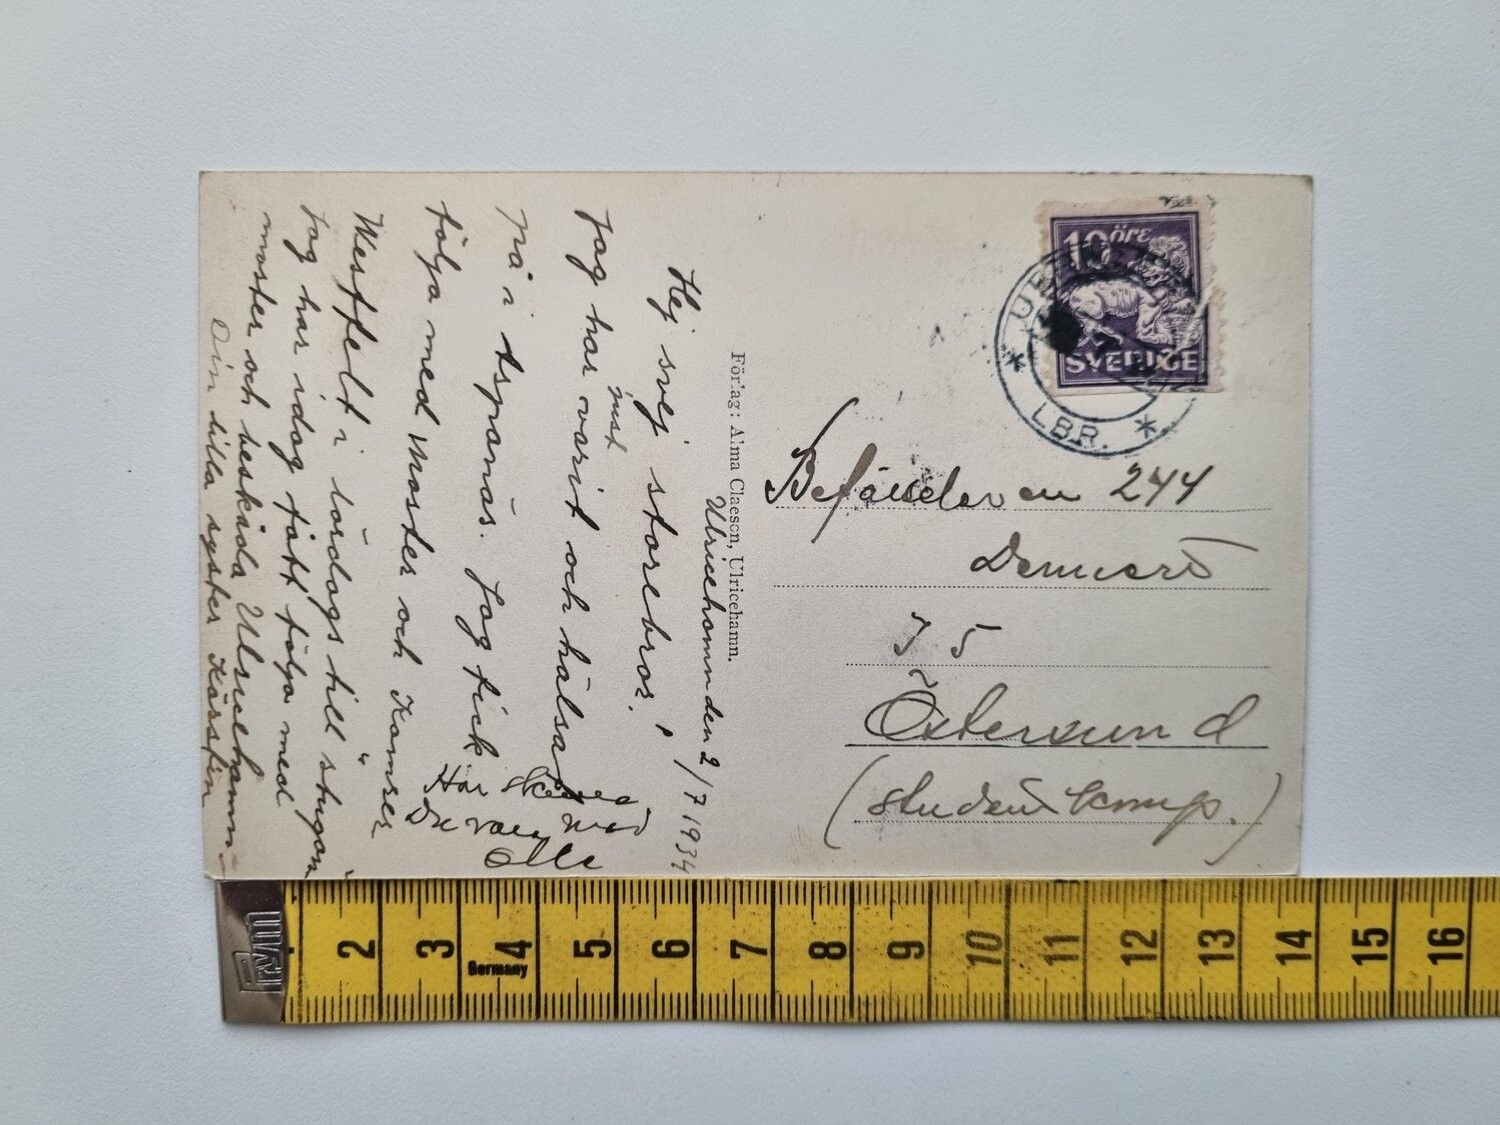 Ulricehamn den 2/7 1934
Hej svej storebror!
Jag har just varit och hälsat
på i Espanäs. Jag fick
följa med Moster och Kamrer
Westfelt i lördags till "stugan"
Jag har idag fått följa med
moster och beskåda Ulricehamn
Din lilla syster Kerstin
Har skrivo
Du
med
Olle
Förlag: Alma Claeson, Ulricehamn.
10 ÖRE
SVERIGE
LBR.
244
I 5
Östersund
(studentkomp.)
mm
2 3 4 5 6 7 8 9 10 11 12 13 14 15 16
Germany